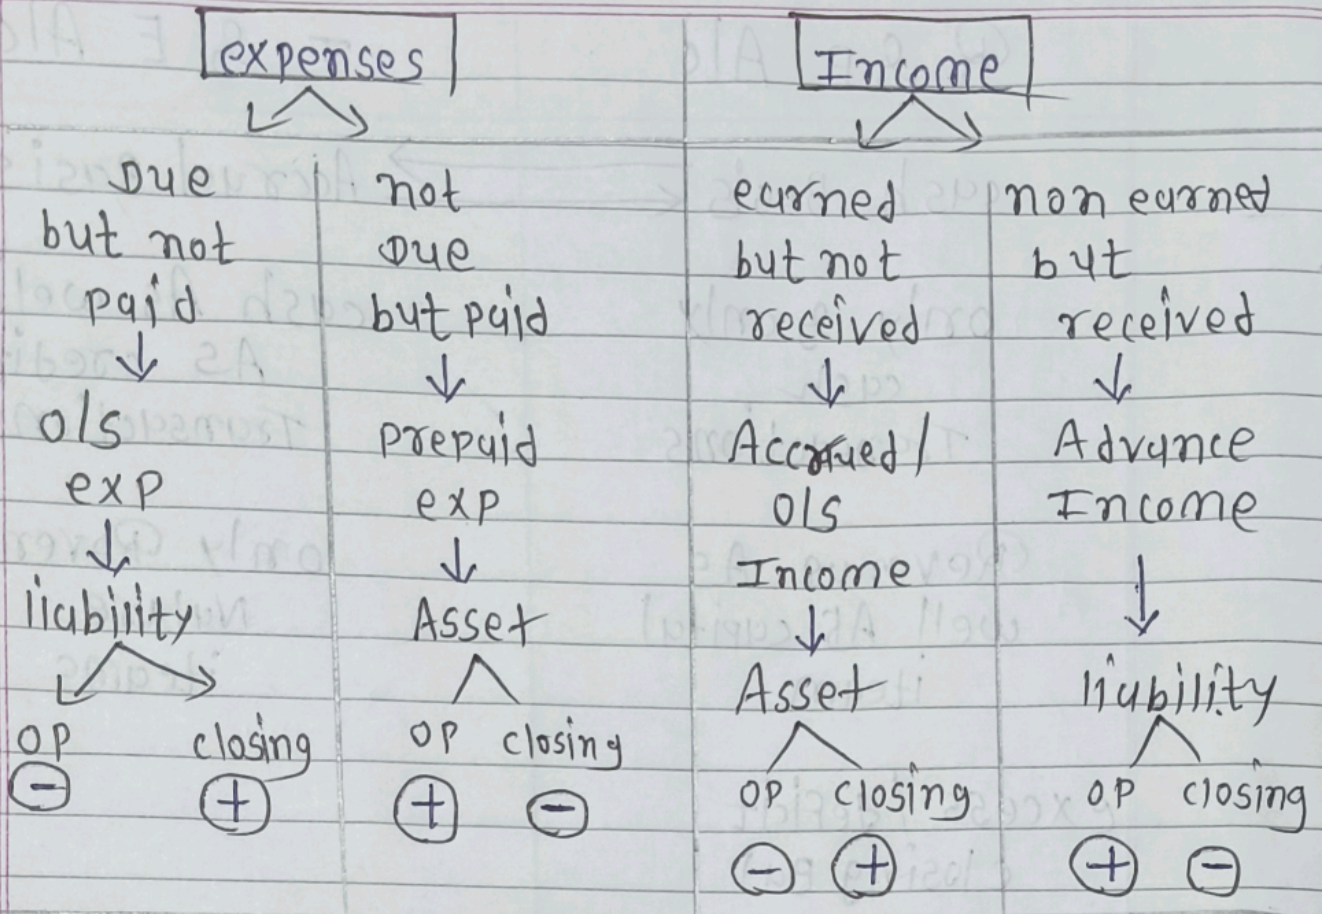 expenses
Income
Due
but not
paid
↓
o/s
exp
↓
liability
op closing
⊖ ⊕
not
Due
but paid
↓
prepaid
exp
↓
Asset
op closing
⊕ ⊖
earned
but not
received
↓
Accrued/
o/s
Income
↓
Asset
op closing
⊖ ⊕
non earned
but
received
↓
Advance
Income
↓
liability
op closing
⊕ ⊖